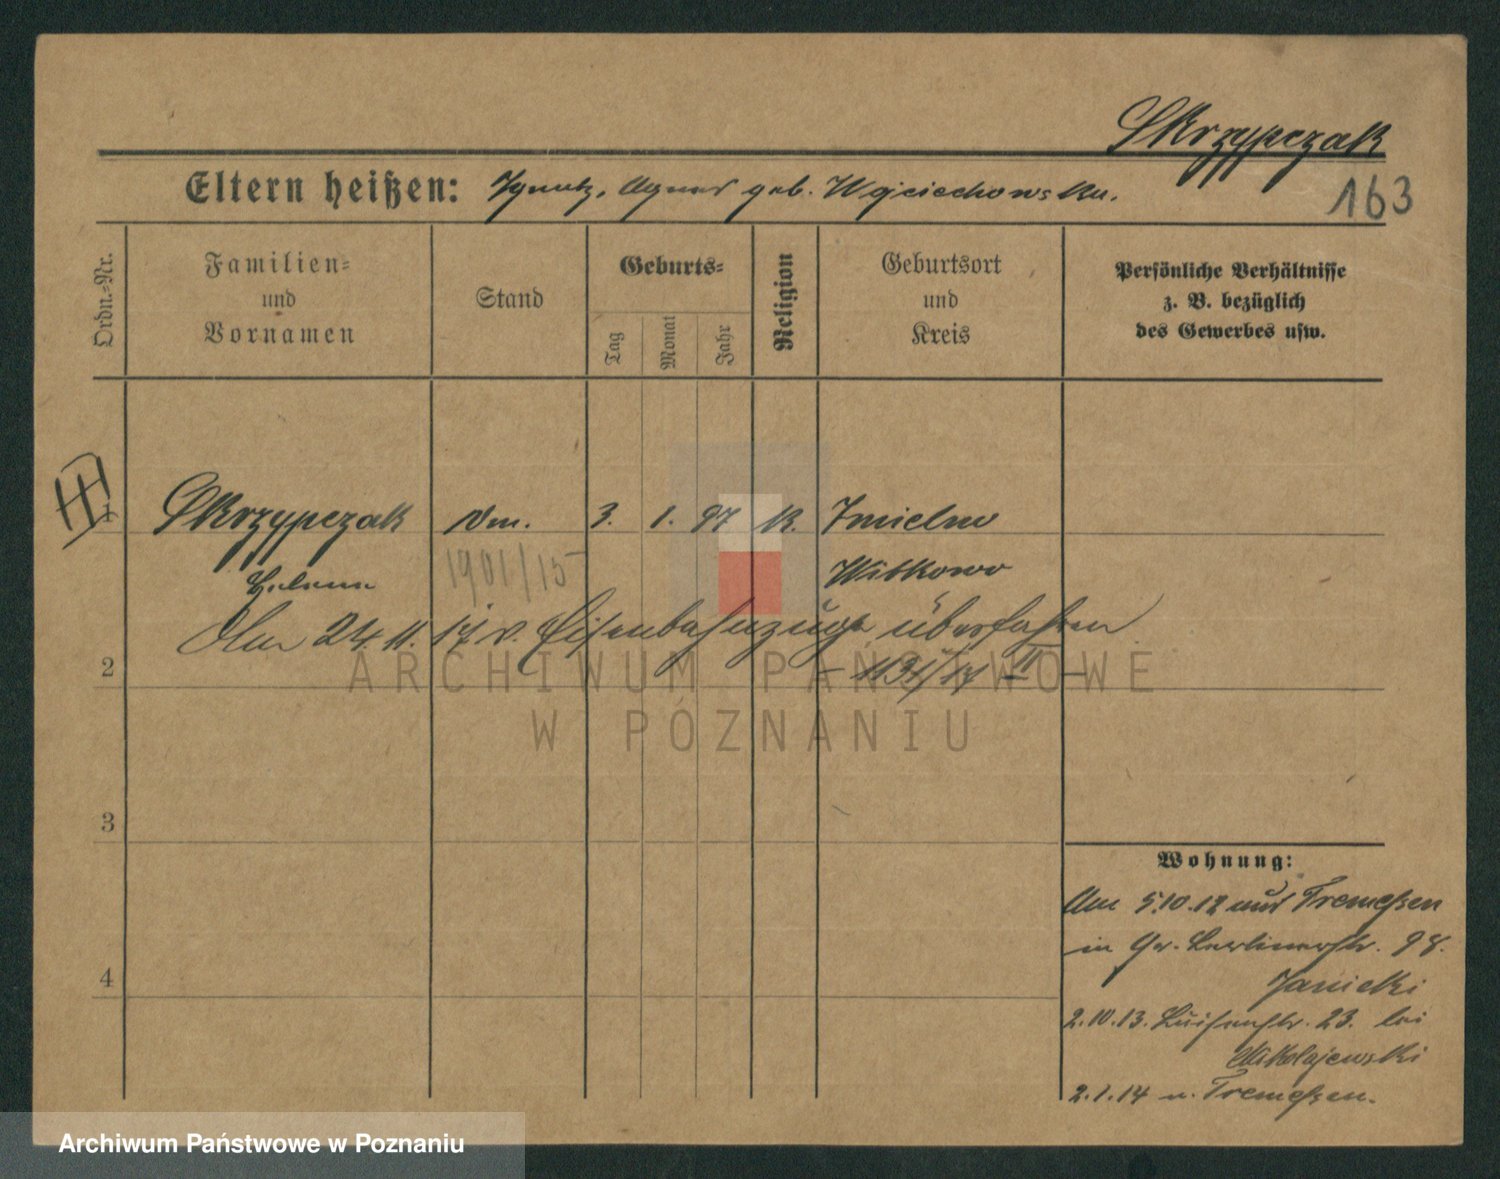 Skrzypczak
Eltern heißen: Ignatz, Agnes geb. Wojciechowska.
163
Ordn.-Nr.
Familien-
und
Vornamen
Stand
Geburts-
Tag
Monat
Jahr
Religion
Geburtsort
und
Kreis
Persönliche Verhältnisse
z. B. bezüglich
des Gewerbes usw.
1 Skrzypczak 3. 1. 97 K. Imielno
Helena 1901/15 Witkowo
Am 24. 11. 17 v. Eisenbahnzuge überfahren
2
- 1131/17 II -
ARCHIWUM PAŃSTWOWE
W POZNANIU
3
Wohnung:
Am 5.10.12 aus Tremessen
in Gr. Berlinerstr. 98.
4
Janicki
2.10.13. Luisenstr. 23. bei
Mikolajewski
2.1.14 n. Tremessen.
Archiwum Państwowe w Poznaniu